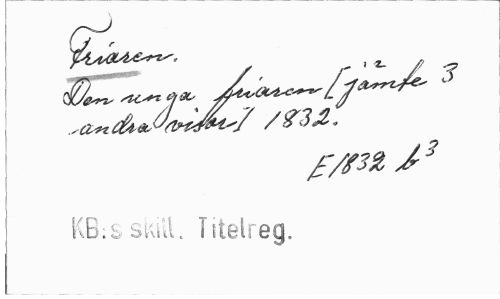 Friaren.
Den unga friaren [jämte 3
andra visor] 1832.
E1832 b3
KB:s skill. Titelreg.